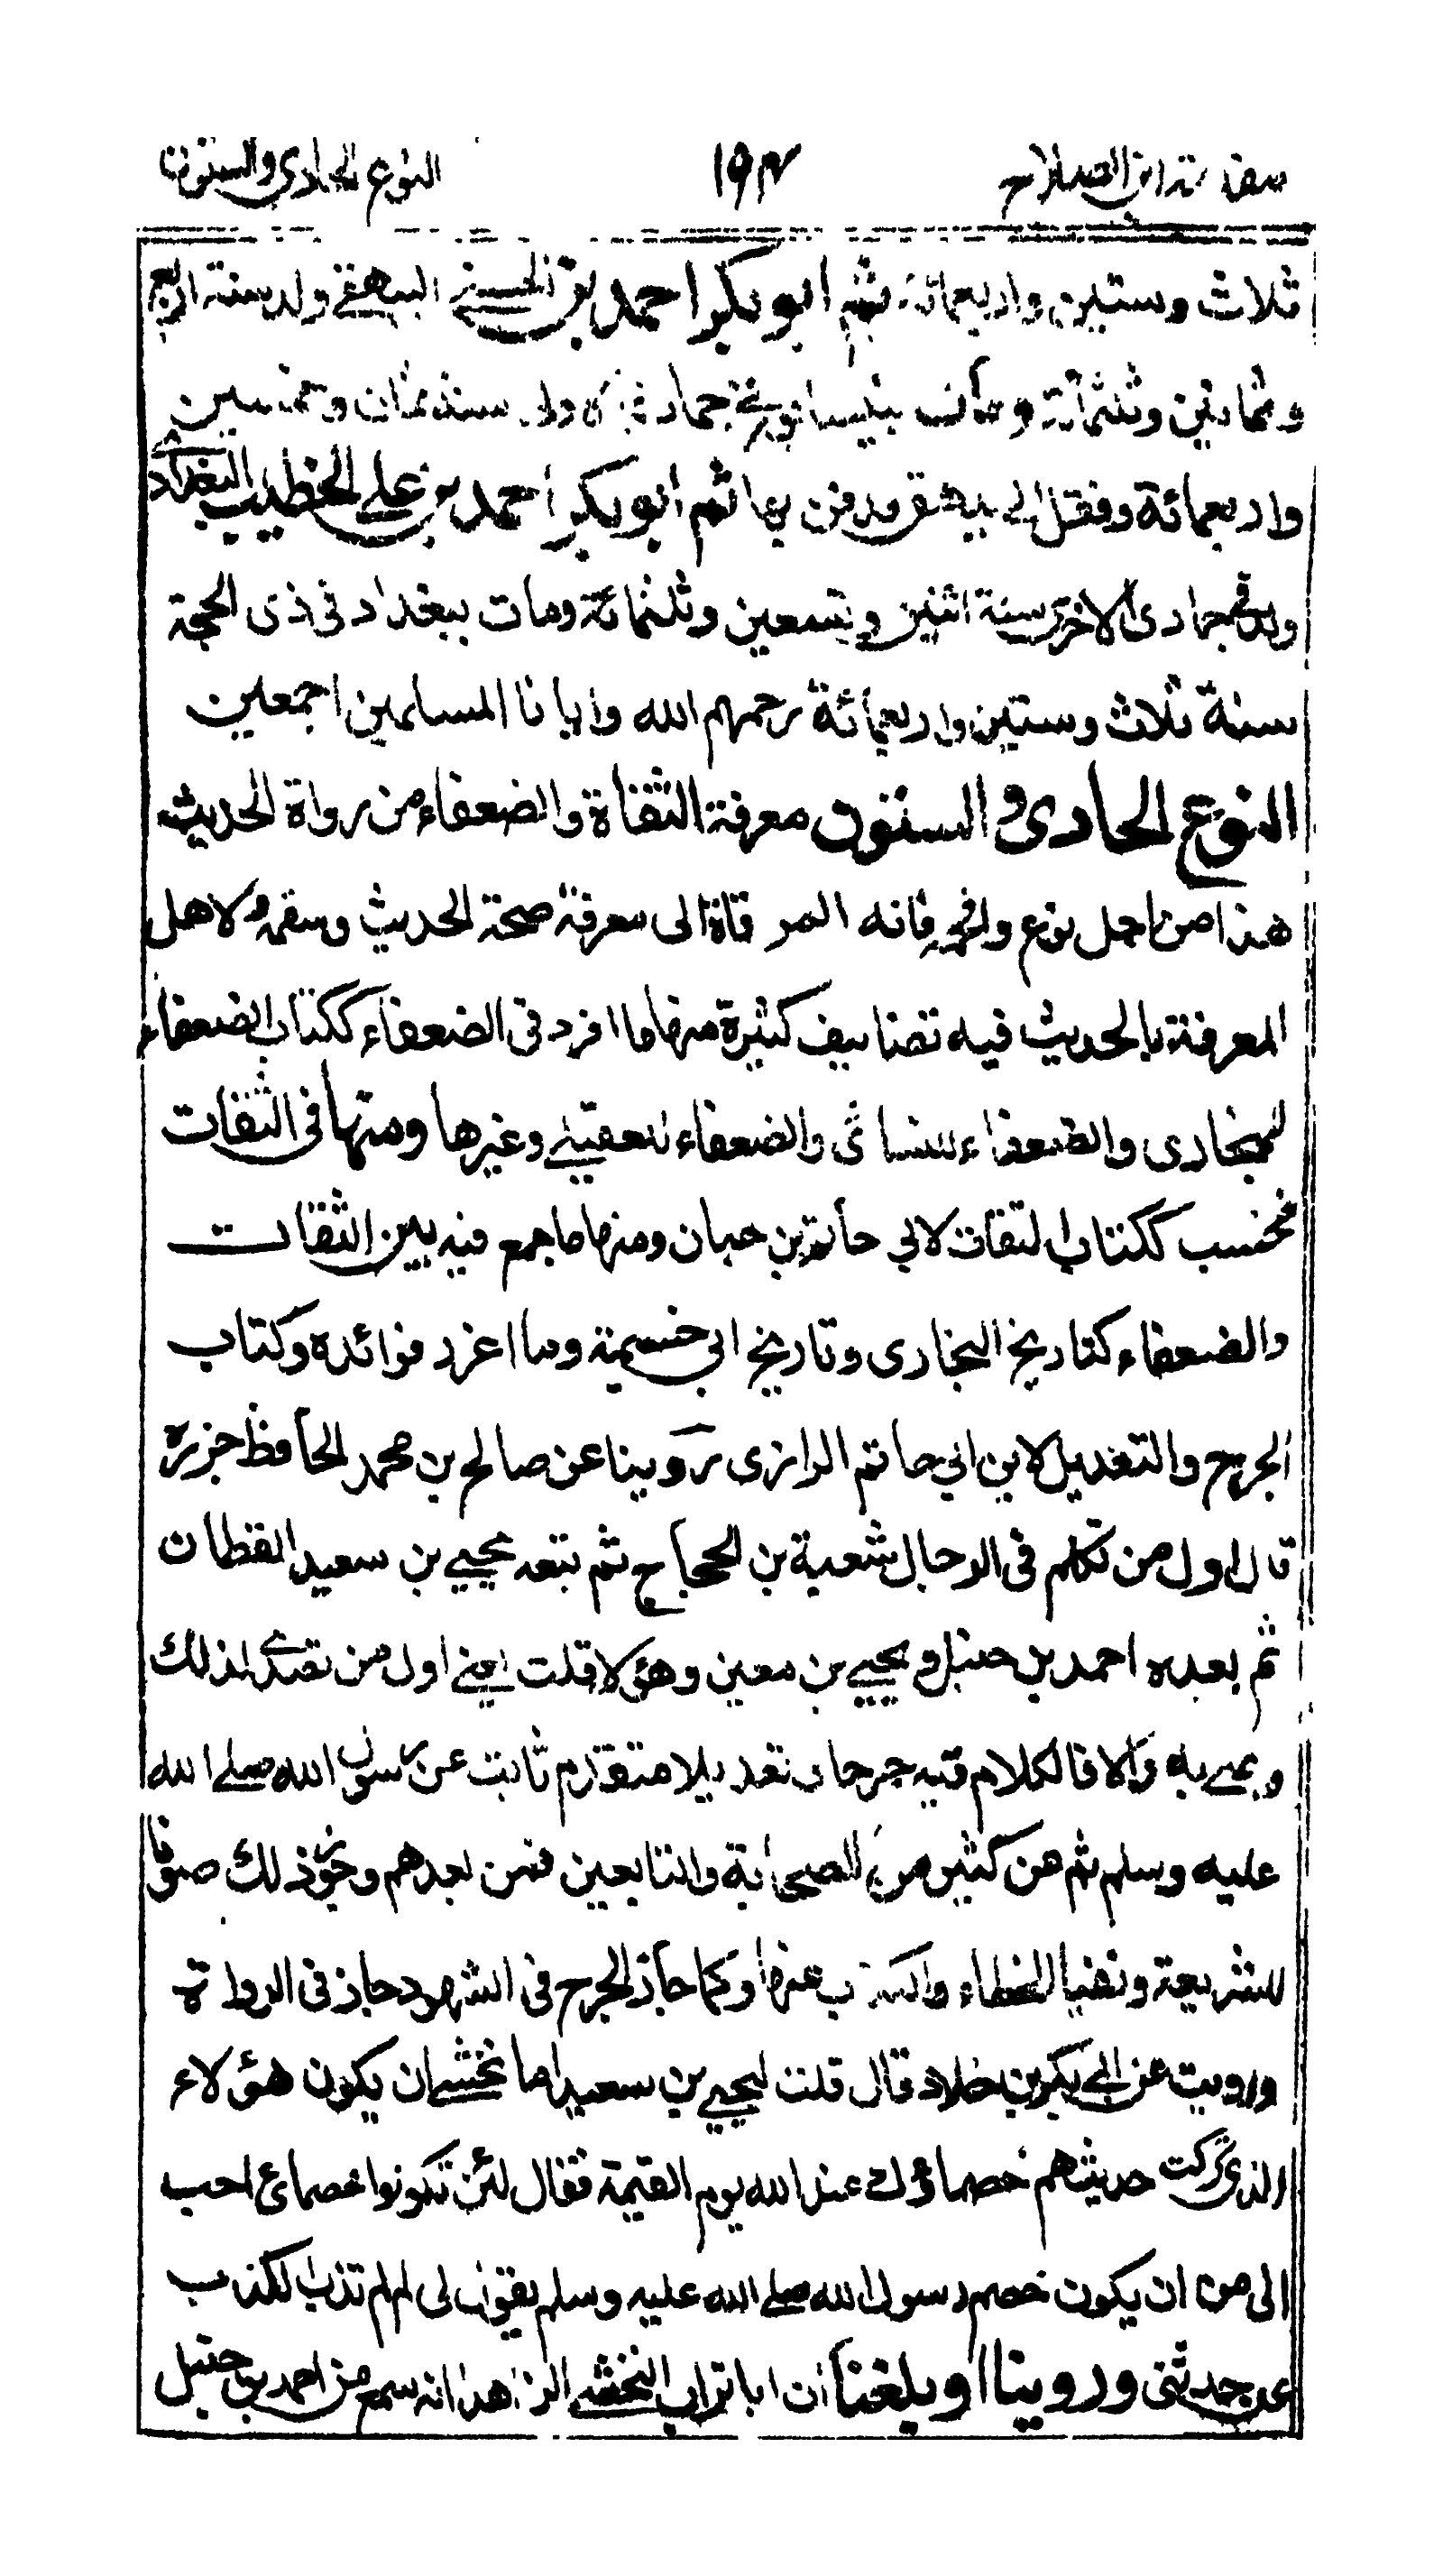 مقدمة ابن الصلاح ١٩٣ النوع الحادي والستون
ثلاث وستين واربعمائة ثم ابو بكر احمد بن الحسين البيهقي ولد سنة اربع
وثمانين وثلثمائة ومات بنيسابور في جمادى الاولى سنة ثمان وخمسين
واربعمائة ونقل الى بيهق ودفن بها ثم ابو بكر احمد بن علي الخطيب البغدادي
ولد في جمادى الاخرة سنة اثنين وتسعين وثلثمائة ومات ببغداد في ذى الحجة
سنة ثلاث وستين واربعمائة رحمهم الله وايانا المسلمين اجمعين
النوع الحادى والستون معرفة الثقاة والضعفاء من رواة الحديث
هذا من اجل نوع وافخمه فانه المرقاة الى معرفة صحة الحديث وسقمه ولاهل
المعرفة بالحديث فيه تصانيف كثيرة منها ما افرد فى الضعفاء ككتاب الضعفاء
للبخارى والضعفاء للنسائى والضعفاء للعقيلي وغيرها ومنها فى الثقات
فحسب ككتاب الثقات لابي حاتم بن حبان ومنها ما جمع فيه بين الثقات
والضعفاء كتاريخ البخارى وتاريخ ابي خيثمة وما اغزر فوائده وكتاب
الجرح والتعديل لابن ابي حاتم الرازى روينا عن صالح بن محمد الحافظ جزرة
قال اول من تكلم فى الرجال شعبة بن الحجاج ثم تبعه يحيى بن سعيد القطان
ثم بعده احمد بن حنبل ويحيى بن معين وهؤلاء قلت يعني اول من تصدى لذلك
وعني به والا فالكلام فيه جرحا وتعديلا متقدم ثابت عن رسول الله صلى الله
عليه وسلم ثم عن كثير من الصحابة والتابعين فمن بعدهم وجوز ذلك صونا
للشريعة ونفيا للخطاء والكذب عنها وكما جاز الجرح فى الشهود جاز فى الرواة
ورويت عن ابي بكر بن خلاد قال قلت ليحيى بن سعيد اما تخشى ان يكون هؤلاء
الذى تركت حديثهم خصماؤك عند الله يوم القيمة فقال لئن تكونوا خصمائ احب
الى من ان يكون خصم رسول الله صلى الله عليه وسلم يقول لى لم لم تذب الكذب
عن حديثى وروينا او بلغنا ان ابا تراب النخشبي الزاهد انه سمع من احمد بن حنبل